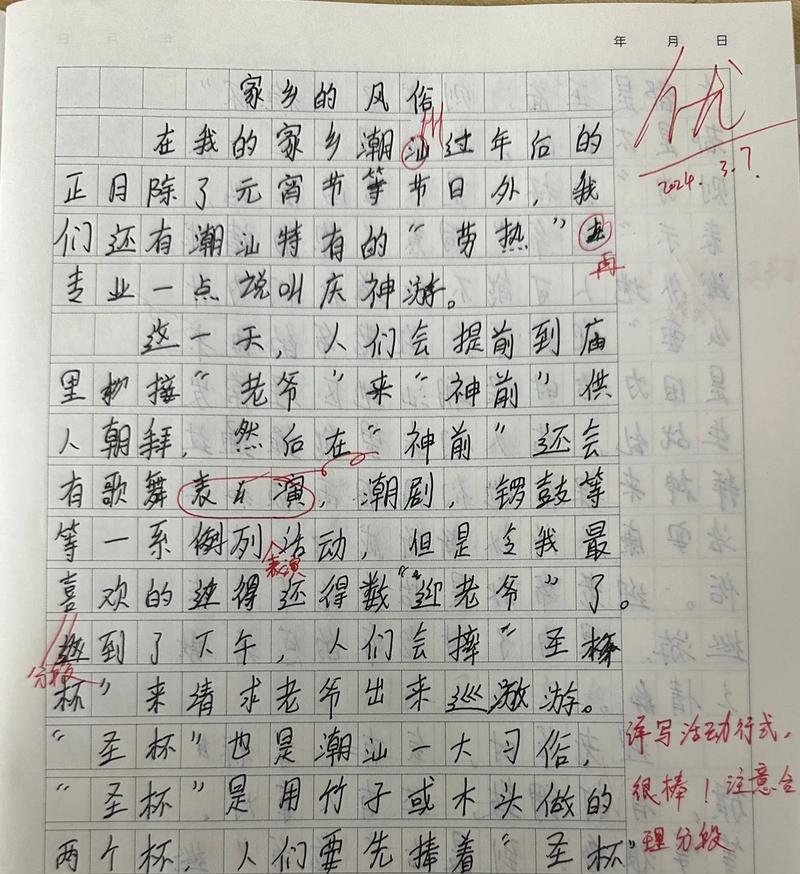 年 月 日
优
2024.3.7.
家乡的风俗
州
在我的家乡潮汕过年后的
正月除了元宵节等节日外，我
们还有潮汕特有的“劳热”
再
专业一点说叫庆神游。
这一天，人们会提前到庙
里接“老爷”来“神前”供
人朝拜，然后在“神前”还会
有歌舞表演，潮剧，锣鼓等
等一系列活动，但是令我最
表演
喜欢的还得数“迎老爷”了。
到了下午，人们会摔“圣
分段
杯”来请求老爷出来巡游。
详写活动行式，
“圣杯”也是潮汕一大习俗，
很棒！注意合
“圣杯”是用竹子或木头做的
理分段
两个杯，人们要先捧着“圣杯”